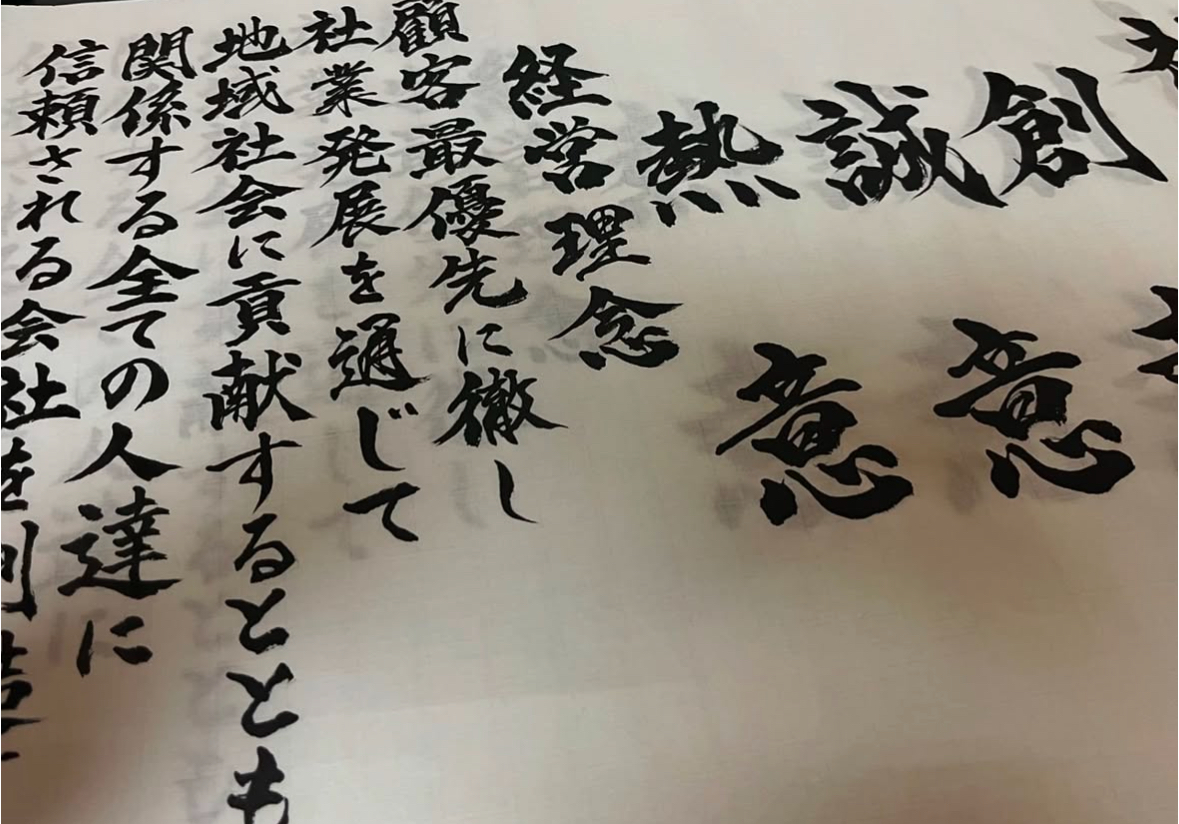 創意
誠意
熱
経営理念
顧客最優先に徹し
社業発展を通じて
地域社会に貢献するととも
関係する全ての人達に
信頼される会社を創造